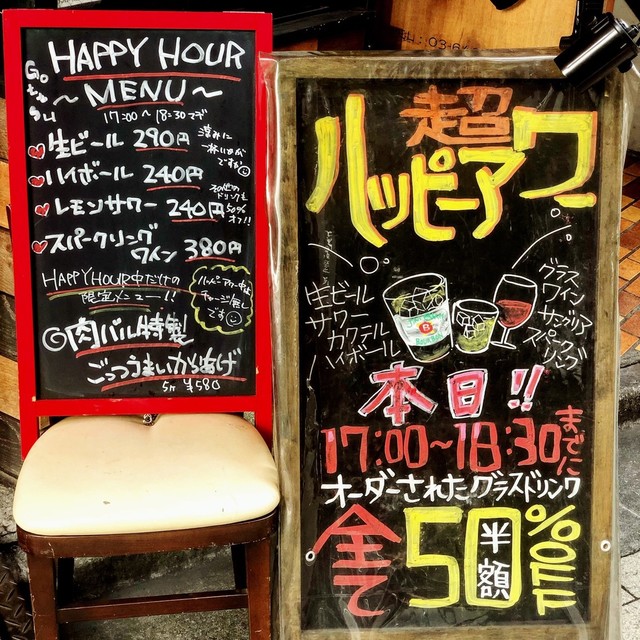 HAPPY HOUR
～MENU～
17:00～18:30まで
生ビール 290円
ハイボール 240円
レモンサワー 240円
その他の
ドリンクも
50%
オフ!!
スパークリング
ワイン 380円
HAPPY HOUR中だけの
限定メニュー!!
ハッピーアワー中は
チャージ無し
です
◎肉バル特製
ごっつうまいからあげ
5ヶ ¥580
超
ハッピーアワー
生ビール
サワー
カクテル
ハイボール
グラス
ワイン
サングリア
スパーク
リング
本日!!
17:00～18:30までに
オーダーされたグラスドリンク
全て50%OFF
半額